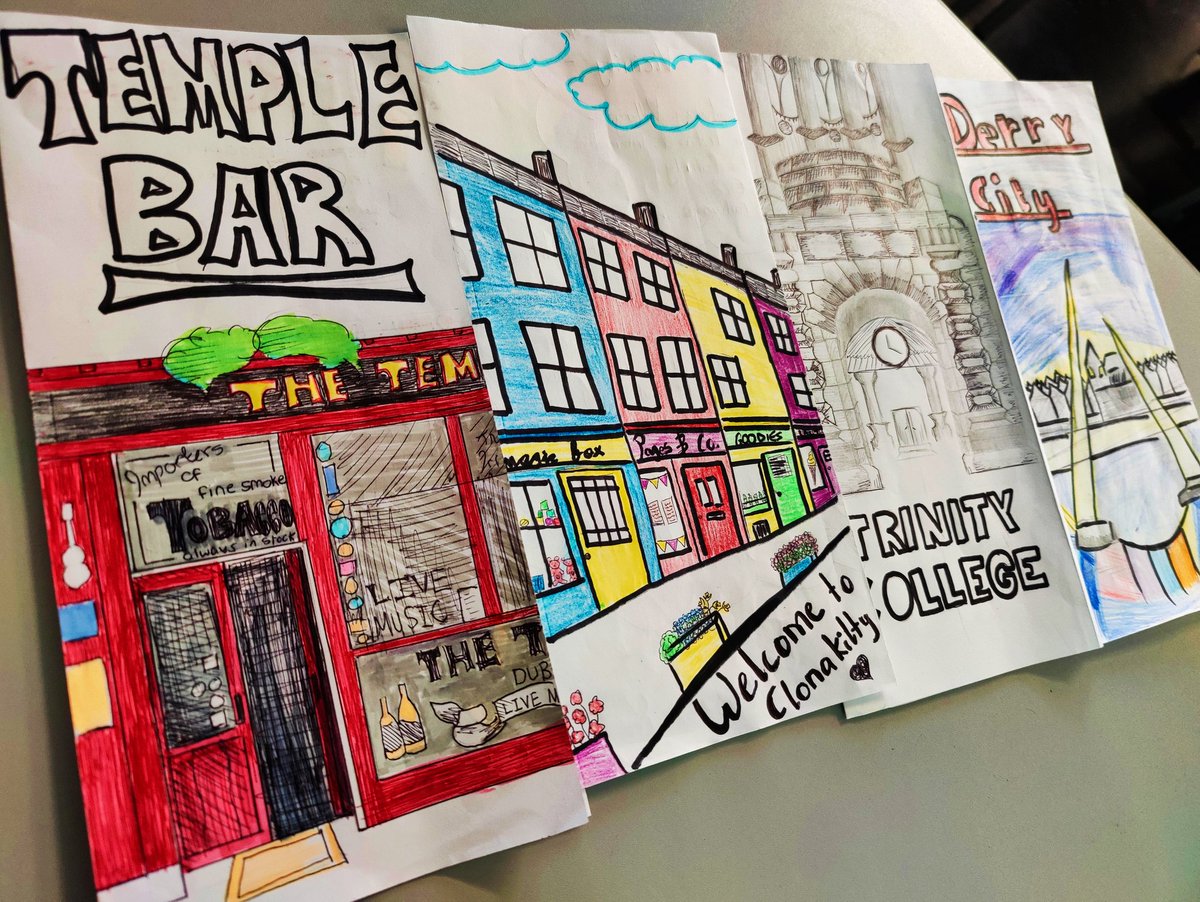 TEMPLE
BAR
THE TEM
Importers
of
fine smoke
TOBACCO
always in stock
LIVE
MUSIC
THE T
DUB
LIVE M
Box
Pages & Co.
GOODIES
Welcome to
Clonakilty
TRINITY
COLLEGE
Derry
City